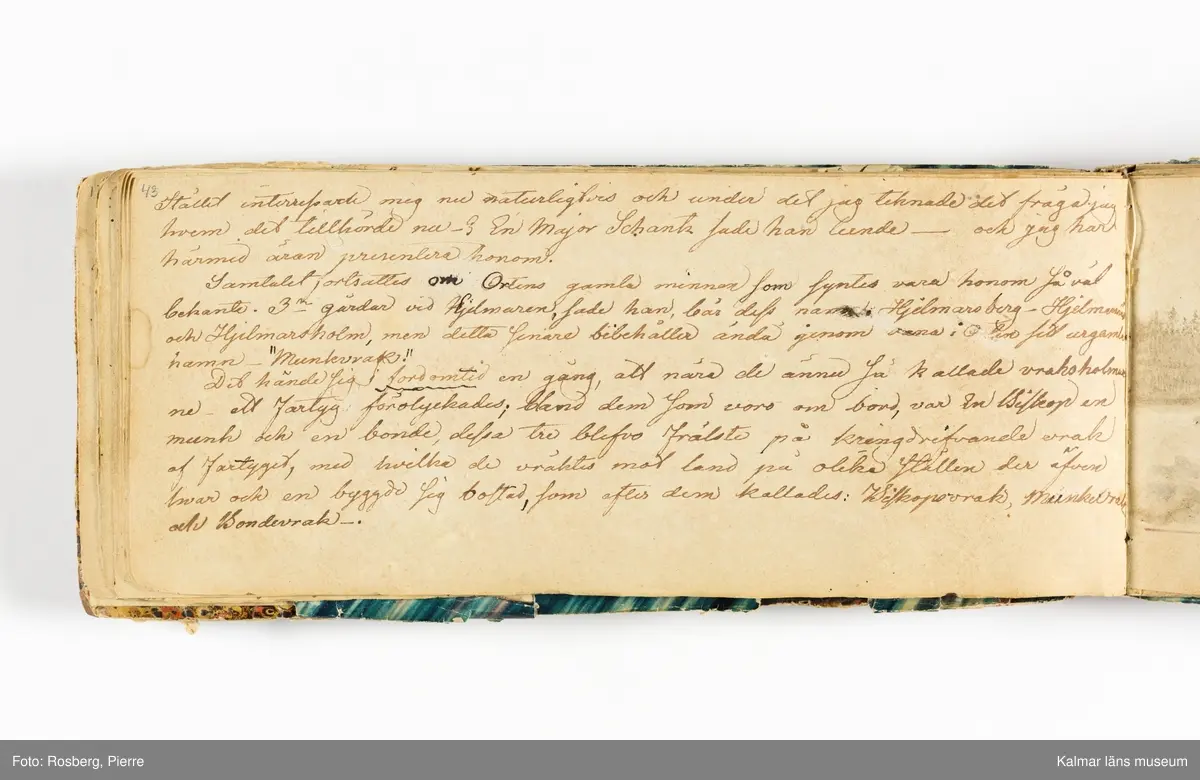 43
Stället interresserade meg nu naturligtvis och under det jag teknade det fråga jag
hvem det tillhörde nu - ? En Major Schantz sade han leende — och jag har
härmid äran presentera honom.
Samtalet fortsattes om Ortens gamla minnen som syntes vara honom så väl
bekante. 3ne gårdar vid Hjelmaren, sade han, bär dess namn: Hjelmarsberg - Hjelmarsnäs
och Hjelmarsholm, men detta senare bibehåller ända igenom sit urgamla
namn - "Munkvrak."
Det hände sig i fordomtid en gång, att nära de ännu så kallade vraksholmar
ne - ett Fartyg förolyckades; bland dem som voro om bord, var En Biskop en
munk och en bonde, dessa tre blefvo frälste på kringdrifvande vrak
af Fartyget, med hvilka de vräktes mot land på olika ställen der äfven
hvar och en byggde sig bostad, som efter dem kallades: Biskopsvrak, Munkevrak
och Bondevrak -.
Foto: Rosberg, Pierre
Kalmar läns museum